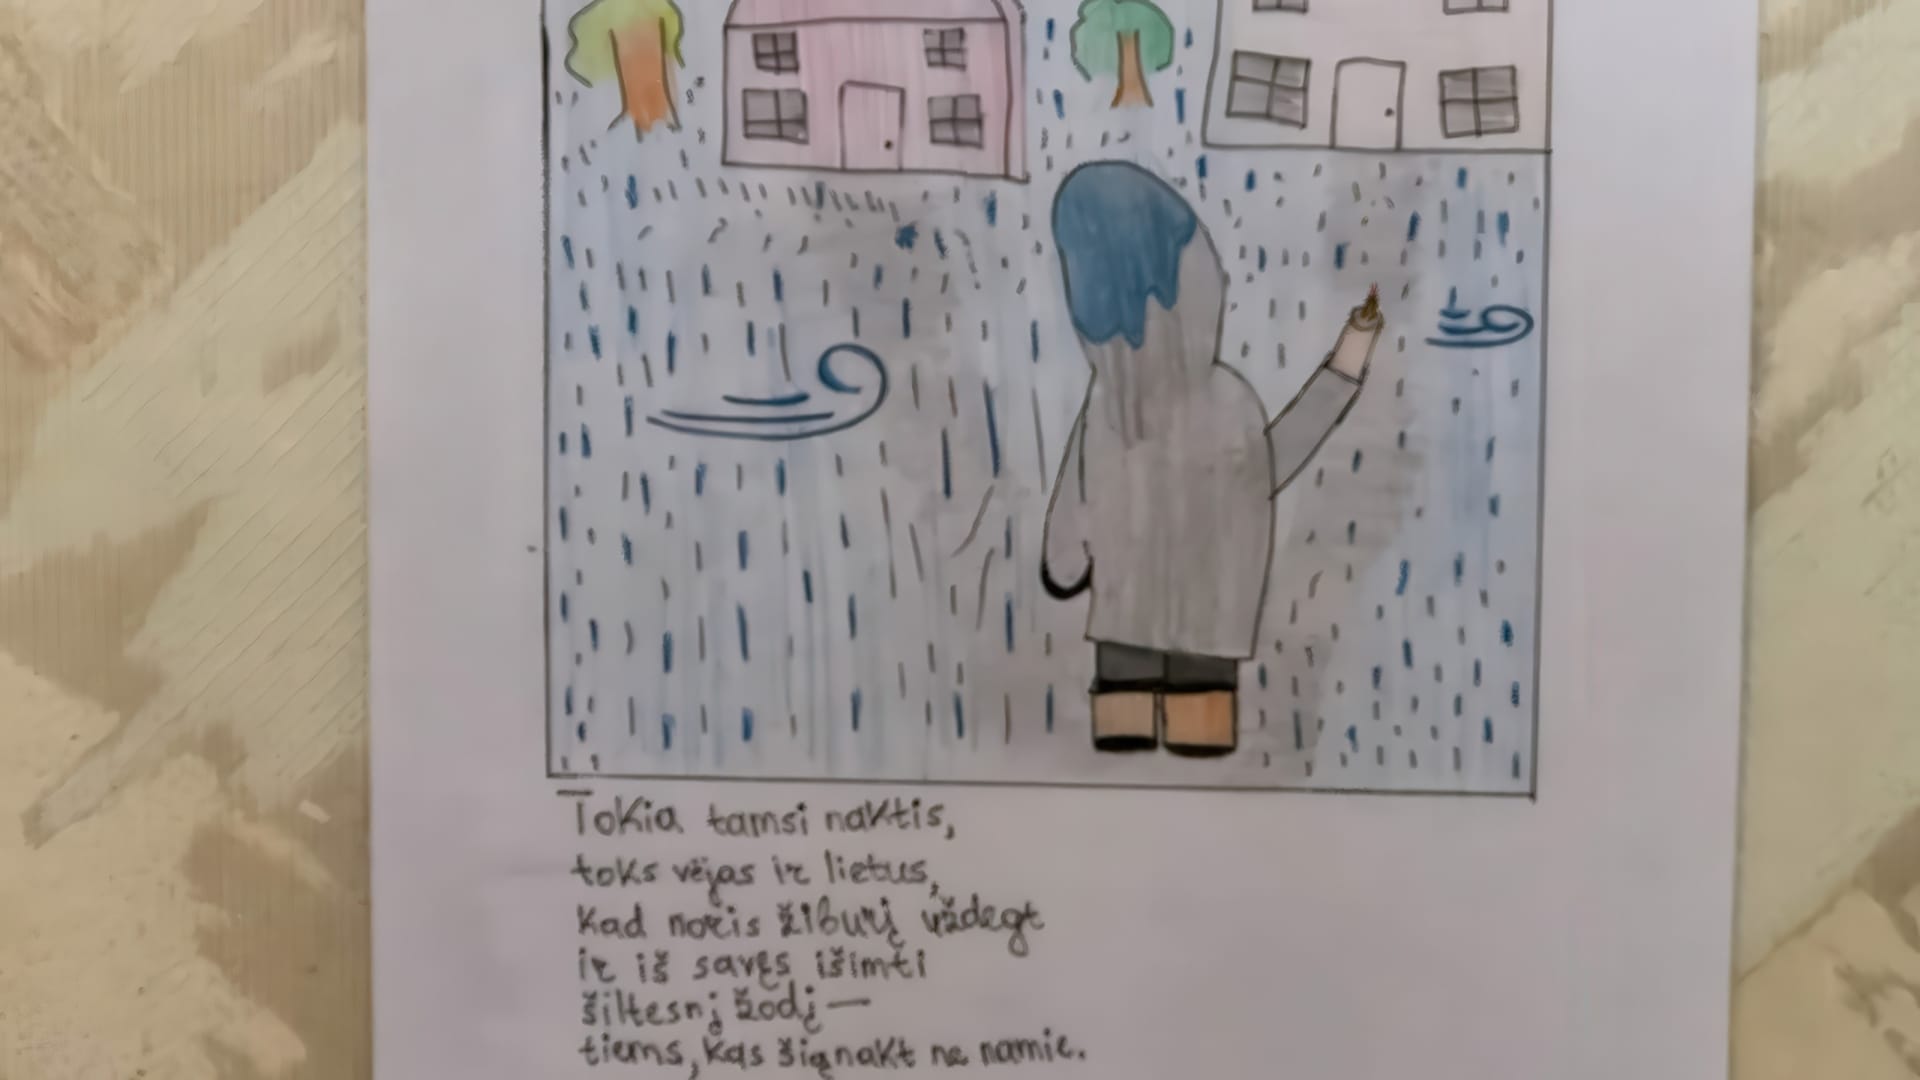 Tokia tamsi naktis,
toks vėjas ir lietus,
kad noris žiburį uždegt
ir iš savęs išimti
šiltesnį žodį—
tiems, kas šiąnakt ne namie.